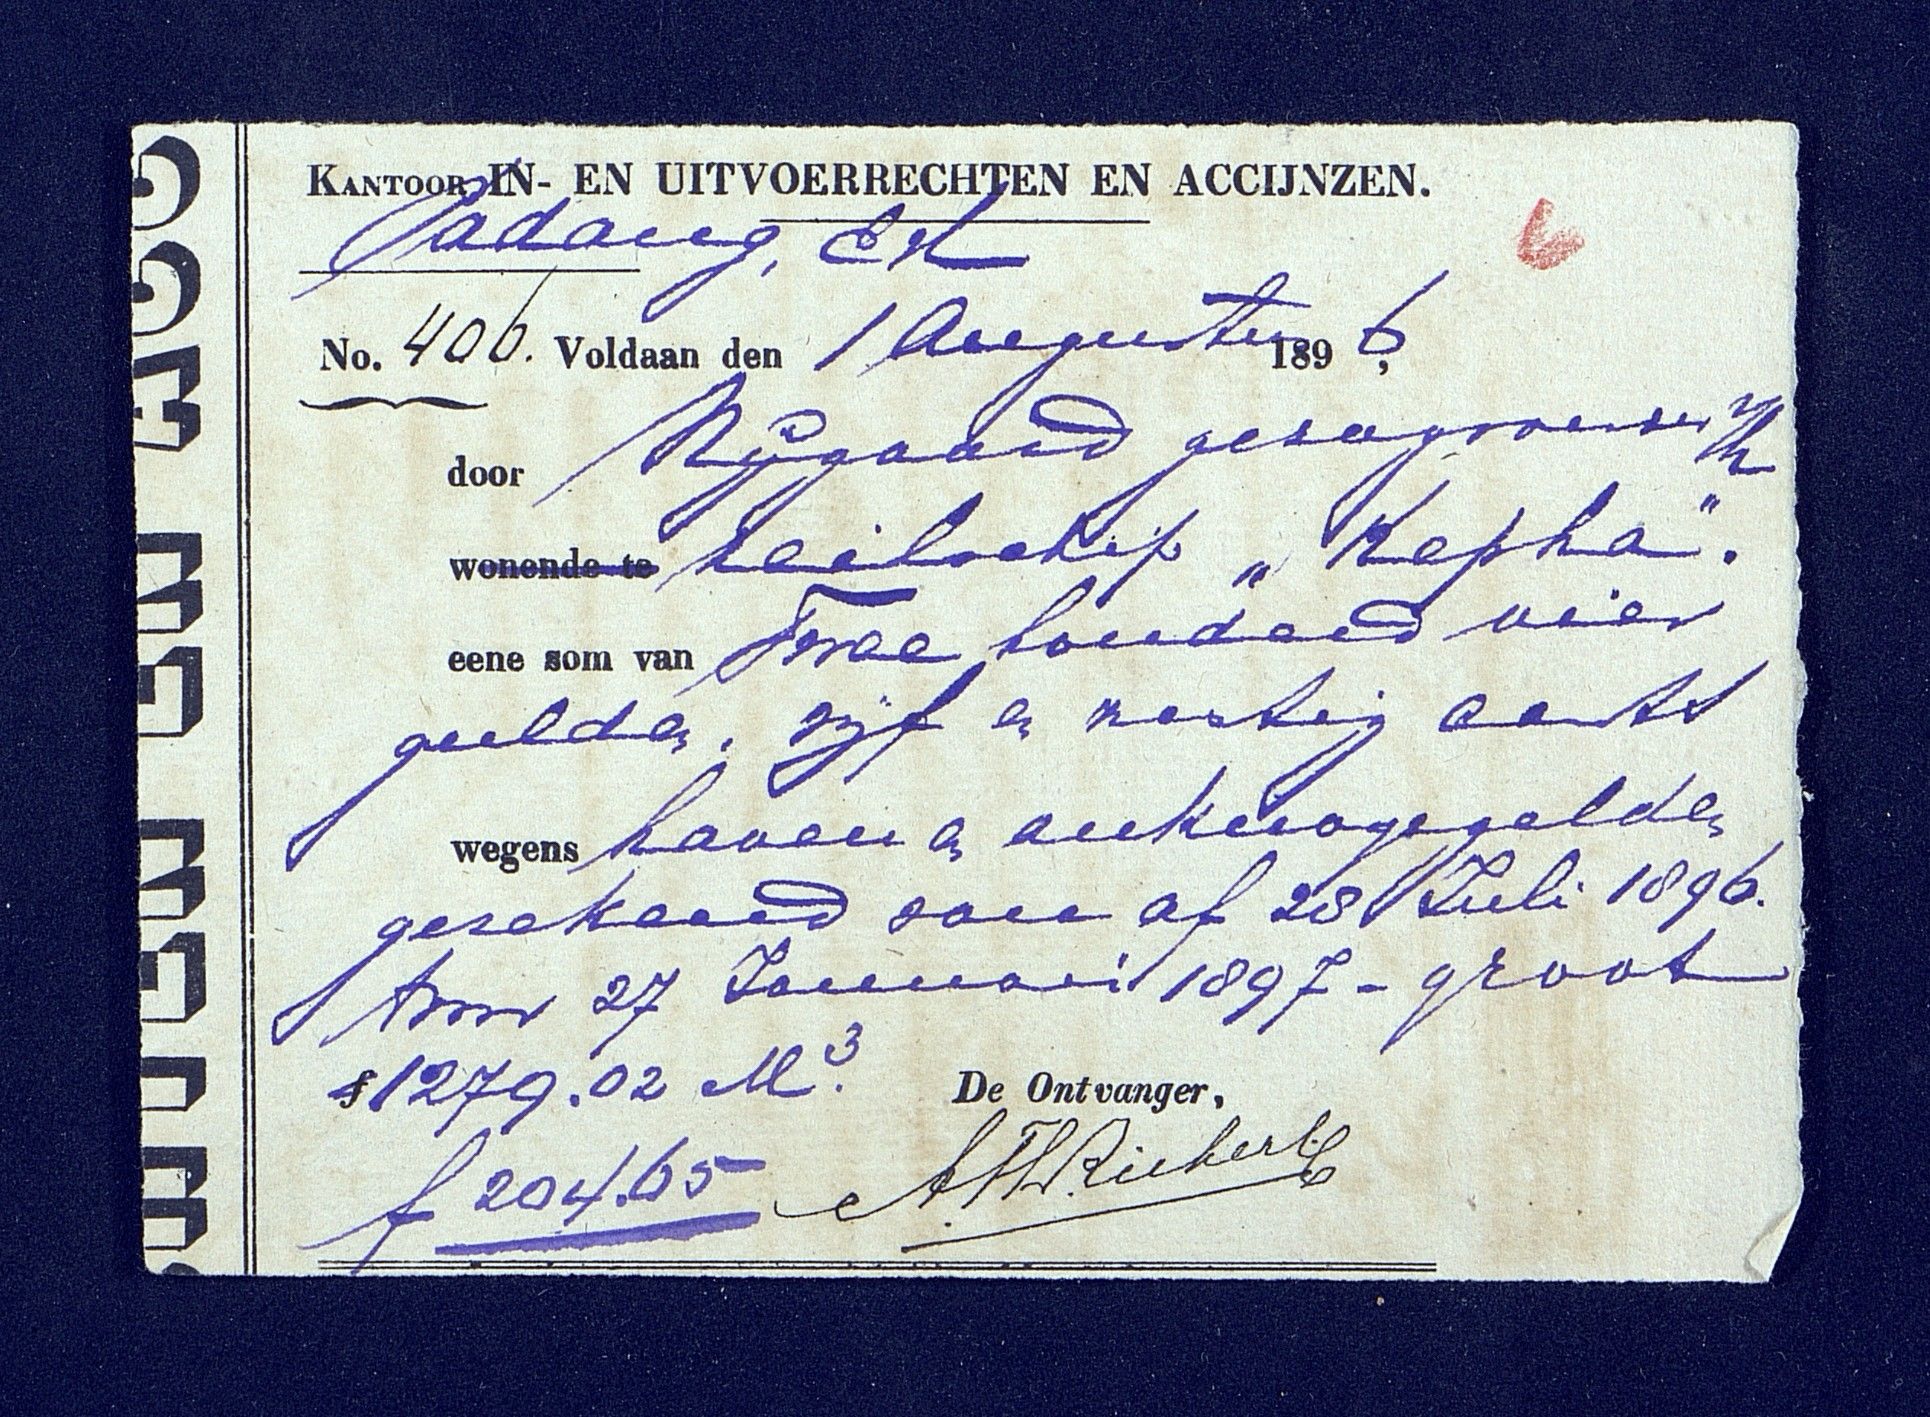 KANTOOR IN- EN UITVOERRECHTEN EN ACCIJNZEN.
Padang,
No. 406. Voldaan den 1 Augustus 1896,
door Nijgaard gezagvoerder v/h
wonende te zeilschip „Kepha".
eene som van Twee honderd vier
gulden, vijf en zestig cents
wegens haven en ankeragegelden
gerekend van af 28 Juli 1896.
27 Januari 1897 - groot
1279.02 M³. De Ontvanger,
f 204.65